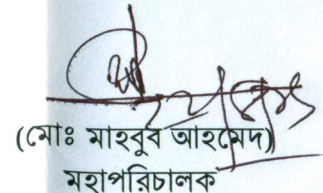 (মোঃ মাহবুব আহমেদ)
মহাপরিচালক